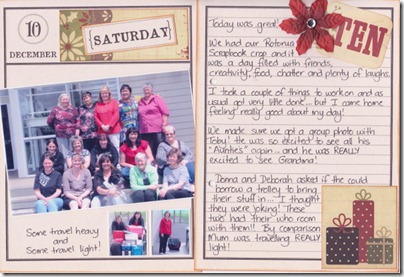 10
DECEMBER
{SATURDAY}
Some travel heavy
and
Some travel light!
TEN
Today was great!
We had our Rotorua
Scrapbook crop and it
was a day filled with friends,
creativity, food, chatter and plenty of laughs.
I took a couple of things to work on and as
usual got very little done... but I came home
feeling really good about my day!
We made sure we got a group photo with
Toby! He was so excited to see all his
"Aunties" again... and he was REALLY
excited to see Grandma!
Donna and Deborah asked if the could
borrow a trolley to bring
their stuff in... I thought
they were joking! These
two had their who room
with them!! By comparison
Mum was travelling REALLY
light!